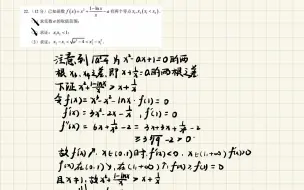 22. (12分) 已知函数 f(x) = x² + (1-lnx)/x - a 有两个零点 x₁, x₂ (x₁ < x₂).
求实数 a 的取值范围;
求证: x₁x₂ < 1;
(3) 求证: x₂ - x₁ <
为 x² - ax + 1 = 0 的两
根 x₃, x₄ 之差, 即 x + 1/x = a 的两根之差
下证 x² + (1-lnx)/x > x + 1/x
令 f(x) = x³ - x² - lnx, f(1) = 0
f'(x) = 3x² - 2x - 1/x, f'(1) = 0
f''(x) = 6x + 1/x² - 2 = 3x + 3x + 1/x² - 2
故 f'(x) ↗ x∈(0,1) 时, f'(x) < 0, x∈(1,+∞) f'(x) > 0
f(x) 在 (0,1) ↘ 在 (1,+∞) ↗ f(x) ≥ f(1) = 0
且 x ≠ 1, 故 x² + (1-lnx)/x > x + 1/x